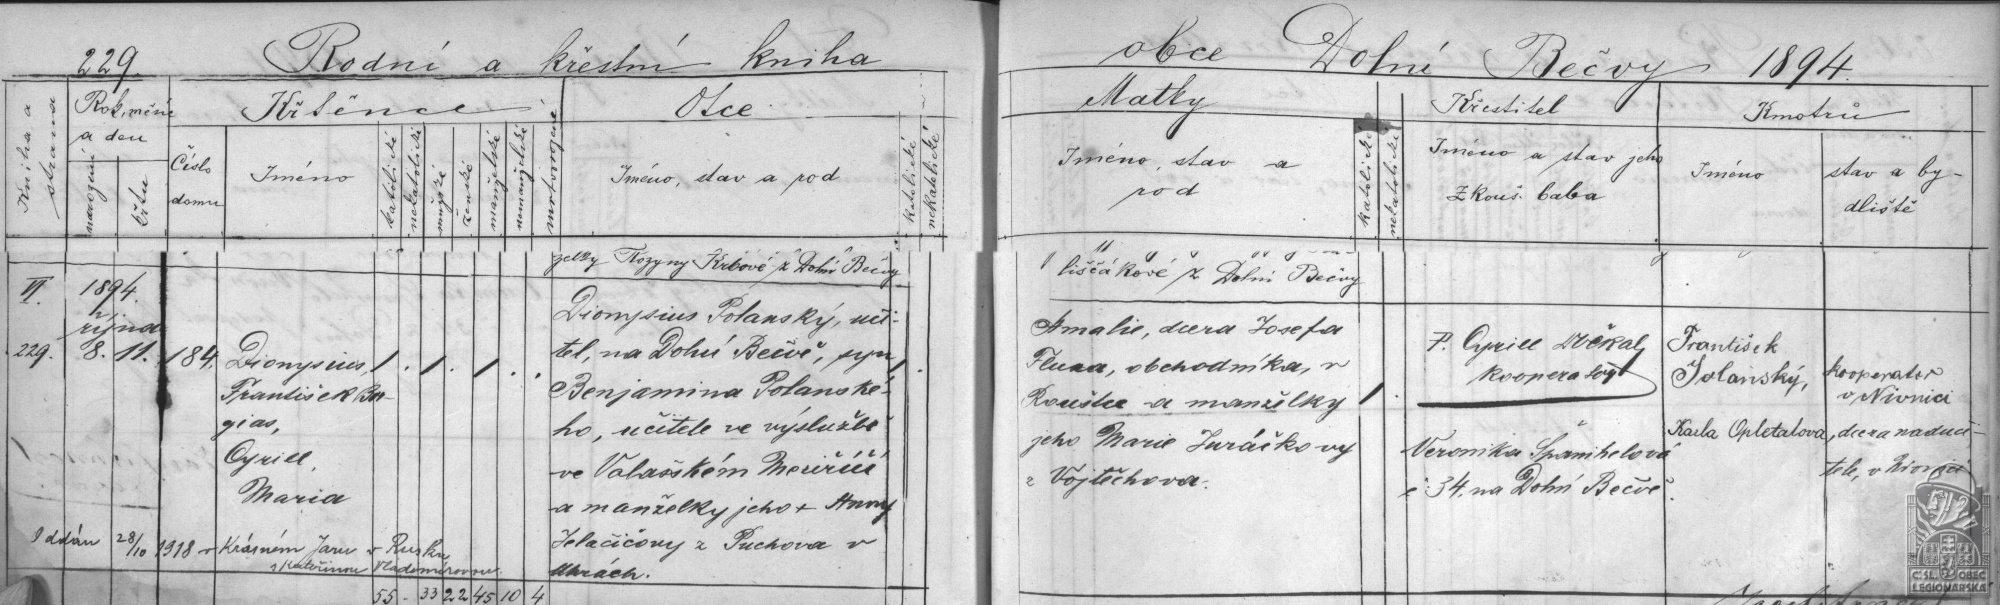 229.
Rodní a křestní kniha
obce Dolní Bečvy 1894.
Kniha a strana
Rok, měsíc a den
narození
křtu
Číslo domu
Křtěnce
Jméno
katolické
nekatolické
mužské
ženské
manželské
nemanželské
mrtvorozené
Otce
Jméno, stav a rod
katolické
nekatolické
Matky
Jméno, stav a rod
katolické
nekatolické
Křestitel
Jméno a stav jeho
Zkouš. baba
Kmotrů
Jméno
stav a by-
dliště
želky Rozyny Krbové z Dolní Bečvy
liščákové z Dolní Bečvy
VI.
229.
1894.
října
8. 11.
184.
Dionysius,
František Bor-
gias,
Cyrill,
Maria
Dionysius Polanský, uči-
tel, na Dolní Bečvě, syn
Benjamina Polanské-
ho, učitele ve výslužbě
ve Valašském Meziříčí
a manželky jeho + Anny
Jelačičovy z Puchova v
Uhrách.
Amalie, dcera Josefa
obchodníka, v
a manželky
jeho Marie Juráčkovy
z Vojtěchova.
P. Cyrill
kooperator
Veronika Španihelová
č 34. na Dolní Bečvě.
František
Polanský,
kooperator
v Nivnici
Karla Opletalova, dcera naduči-
tele, v
Oddán 28/10 1918 v Krásném Jaru v Rusku
s Kateřinou Vladomírovou.
55 - 33 22 45 10 4
Č:SL: OBEC
LEGIONÁŘSKÁ